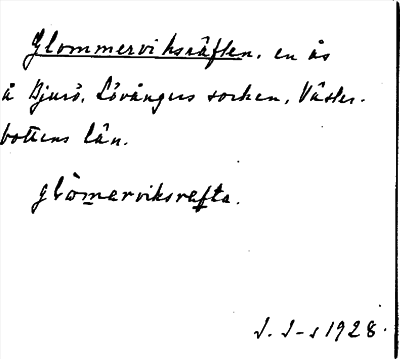 Glommerviksräften, en ås
å Bjurö, Lövångers socken, Väster-
bottens län.
glòmerviksrefta.
J. J-s 1928.